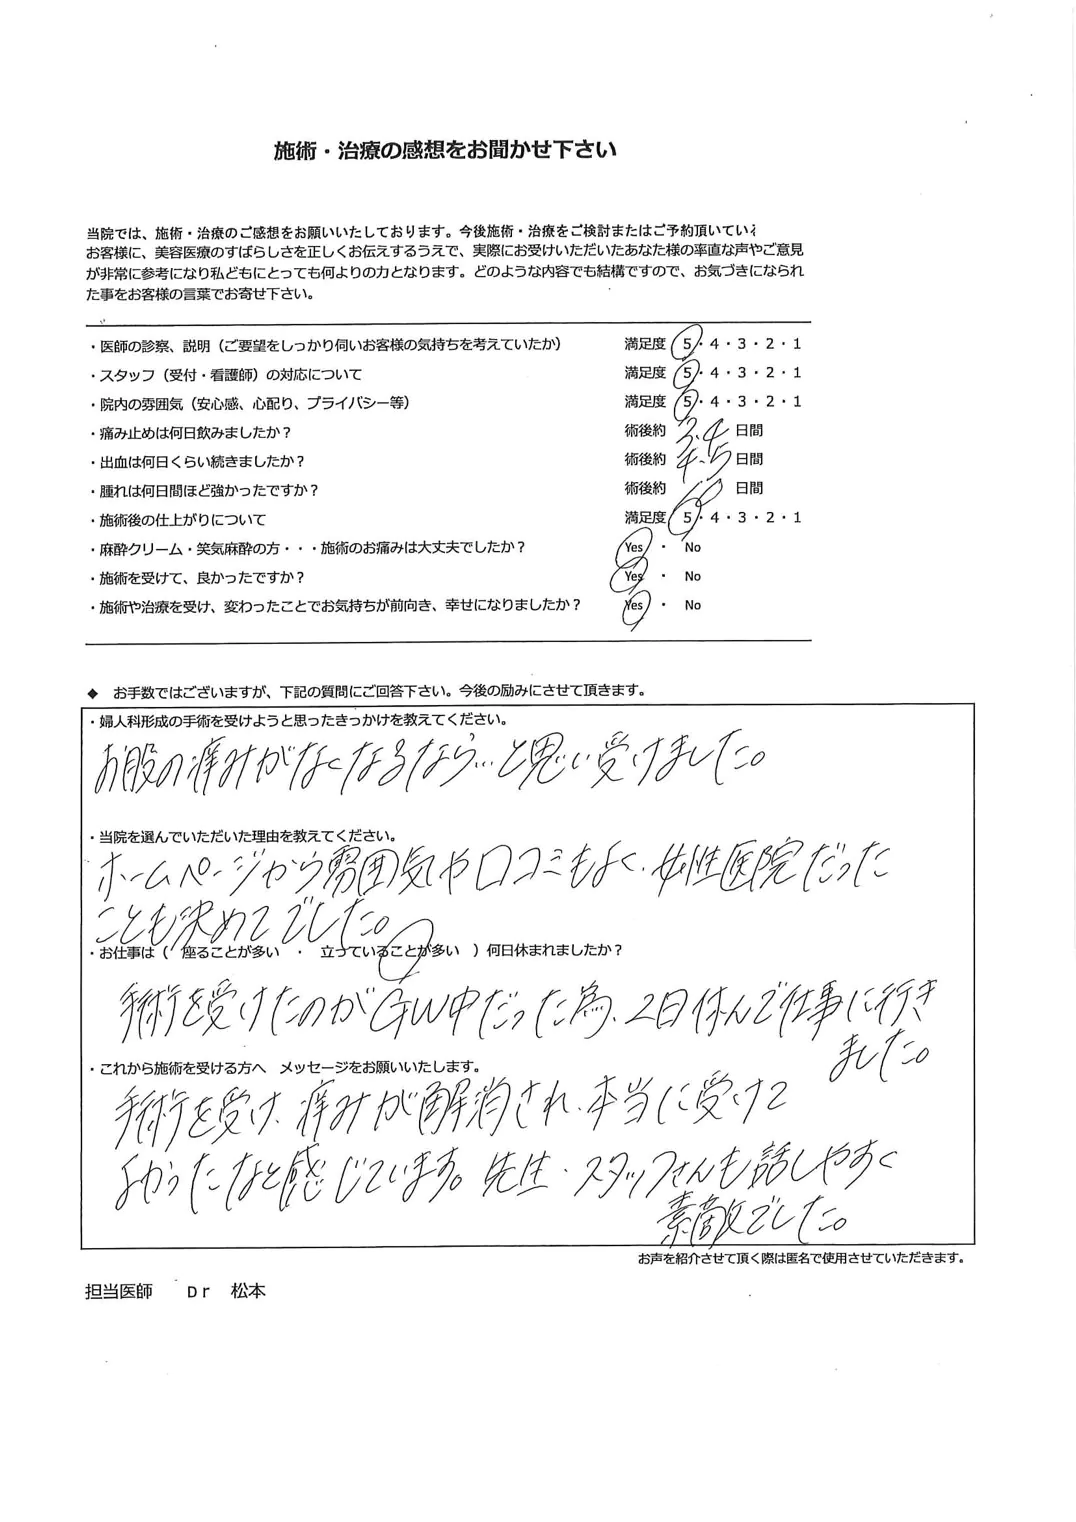 施術・治療の感想をお聞かせ下さい
当院では、施術・治療のご感想をお願いいたしております。今後施術・治療をご検討またはご予約頂いてい
お客様に、美容医療のすばらしさを正しくお伝えするうえで、実際にお受けいただいたあなた様の率直な声やご意見
が非常に参考になり私どもにとっても何よりの力となります。どのような内容でも結構ですので、お気づきになられ
た事をお客様の言葉でお寄せ下さい。
・医師の診察、説明（ご要望をしっかり伺いお客様の気持ちを考えていたか） 満足度 5・4・3・2・1
・スタッフ（受付・看護師）の対応について 満足度 5・4・3・2・1
・院内の雰囲気（安心感、心配り、プライバシー等） 満足度 5・4・3・2・1
・痛み止めは何日飲みましたか？ 術後約 3.4 日間
・出血は何日くらい続きましたか？ 術後約 4.5 日間
・腫れは何日間ほど強かったですか？ 術後約 日間
・施術後の仕上がりについて 満足度 5・4・3・2・1
・麻酔クリーム・笑気麻酔の方・・・施術のお痛みは大丈夫でしたか？ Yes ・ No
・施術を受けて、良かったですか？ Yes ・ No
・施術や治療を受け、変わったことでお気持ちが前向き、幸せになりましたか？ Yes ・ No
◆ お手数ではございますが、下記の質問にご回答下さい。今後の励みにさせて頂きます。
・婦人科形成の手術を受けようと思ったきっかけを教えてください。
お股の痛みがなくなるなら…と思い受けました。
・当院を選んでいただいた理由を教えてください。
ホームページから雰囲気や口コミもよく、女性医院だった
ことも決めてでした。
・お仕事は（ 座ることが多い ・ 立っていることが多い ）何日休まれましたか？
手術を受けたのがGW中だった為、2日休んで仕事に行き
ました。
・これから施術を受ける方へ メッセージをお願いいたします。
手術を受け、痛みが解消され、本当に受けて
よかったなと感じています。先生・スタッフさんも話しやすく
素敵でした。
お声を紹介させて頂く際は匿名で使用させていただきます。
担当医師 Dr 松本